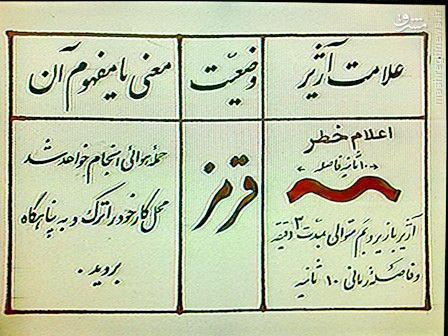 علامت آژیر
وضعیّت
معنی یا مفهوم آن
اعلام خطر
←۱۰ ثانیه فاصله→
آژیر با زیر و بم متوالی بمدت ۳ دقیقه
و فاصلهٔ زمانی ۱۰ ثانیه
قرمز
حملهٔ هوائی انجام خواهد شد
محل کار خود را ترک و به پناهگاه
بروید.
مشرق